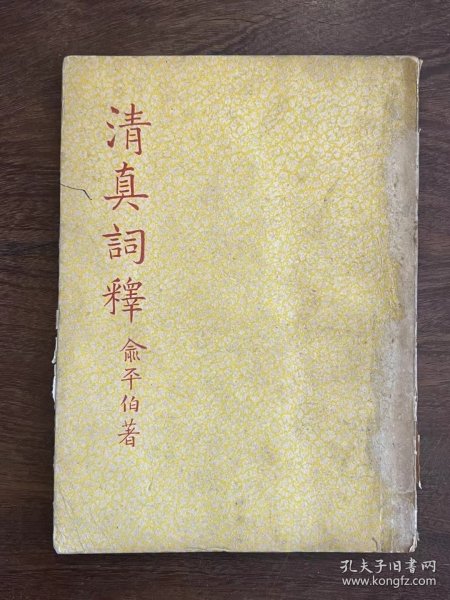 清真詞釋
俞平伯著
孔夫子旧书网
www.kongfz.com